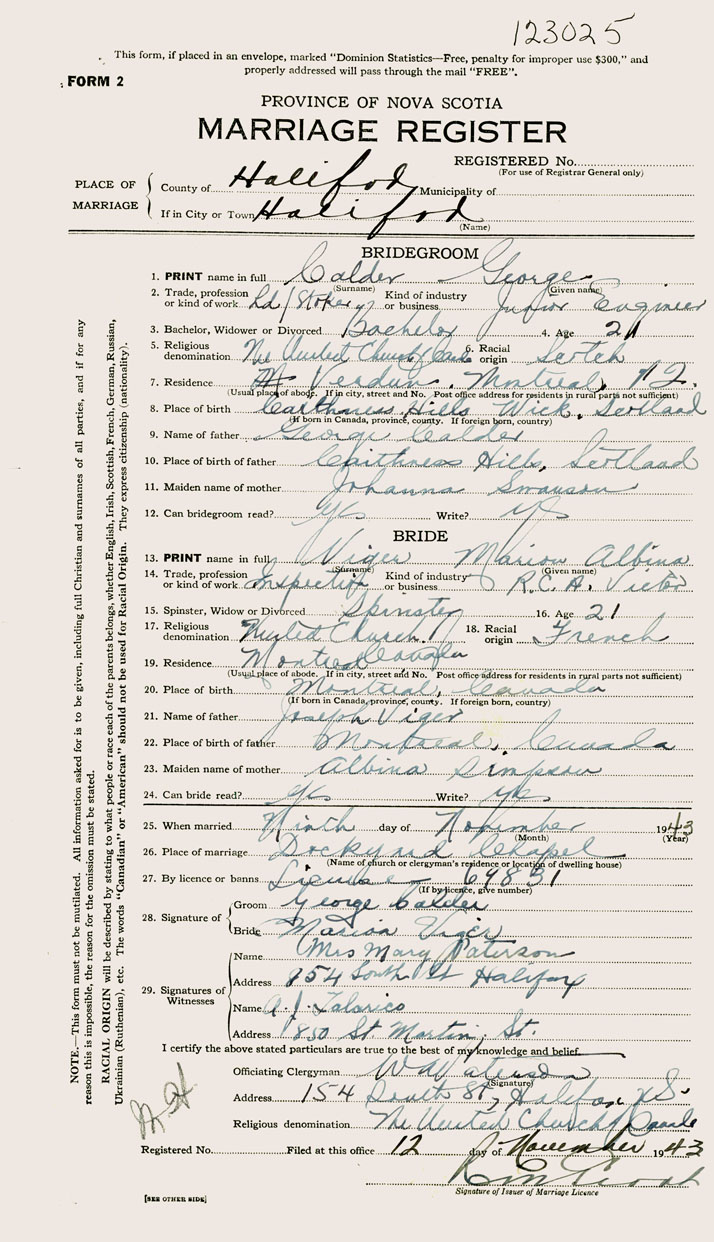 123025
This form, if placed in an envelope, marked "Dominion Statistics—Free, penalty for improper use $300," and
properly addressed will pass through the mail "FREE".
FORM 2
PROVINCE OF NOVA SCOTIA
MARRIAGE REGISTER
REGISTERED No.
(For use of Registrar General only)
PLACE OF MARRIAGE
County of Halifax Municipality of
If in City or Town Halifax
(Name)
BRIDEGROOM
1. PRINT name in full Calder George
(Surname) (Given name)
2. Trade, profession or kind of work Ld/Stoker Kind of industry or business Junior Engineer
3. Bachelor, Widower or Divorced Bachelor 4. Age 21
5. Religious denomination The United Church 6. Racial origin Scotch
7. Residence Verdun, Montreal, P.Q.
(Usual place of abode. If in city, street and No. Post office address for residents in rural parts not sufficient)
8. Place of birth Caithness Hills Wick, Scotland
(If born in Canada, province, county. If foreign born, country)
9. Name of father George Calder
10. Place of birth of father Caithness Hills, Scotland
11. Maiden name of mother Johanna Swanson
12. Can bridegroom read? yes Write? yes
BRIDE
13. PRINT name in full Viger Marion Albina
(Surname) (Given name)
14. Trade, profession or kind of work Kind of industry or business R.C.A. Victor
15. Spinster, Widow or Divorced Spinster 16. Age 21
17. Religious denomination United Church 18. Racial origin French
19. Residence Montreal Canada
(Usual place of abode. If in city, street and No. Post office address for residents in rural parts not sufficient)
20. Place of birth Montreal, Canada
(If born in Canada, province, county. If foreign born, country)
21. Name of father Joseph Viger
22. Place of birth of father Montreal, Canada
23. Maiden name of mother Albina Simpson
24. Can bride read? yes Write? yes
25. When married Ninth day of November 1943
(Month) (Year)
26. Place of marriage Dockyard Chapel
(Name of church or clergyman's residence or location of dwelling house)
27. By licence or banns License 69831
(If by licence, give number)
28. Signature of
Groom George Calder
Bride Marion Viger
29. Signatures of Witnesses
Name Mrs Mary Paterson
Address 154 South St Halifax
Name A. J. Talarico
Address 1850 St Martin St.
I certify the above stated particulars are true to the best of my knowledge and belief
Officiating Clergyman
(Signature)
Address 154 South St, Halifax N.S.
Religious denomination The United Church of Canada
Registered No. Filed at this office 12 day of November 1943
Signature of Issuer of Marriage Licence
[SEE OTHER SIDE]
NOTE.—This form must not be mutilated. All information asked for is to be given, including full Christian and surnames of all parties, and if for any
reason this is impossible, the reason for the omission must be stated.
RACIAL ORIGIN will be described by stating to what people or race each of the parents belongs, whether English, Irish, Scottish, French, German, Russian,
Ukrainian (Ruthenian), etc. The words "Canadian" or "American" should not be used for Racial Origin. They express citizenship (nationality).